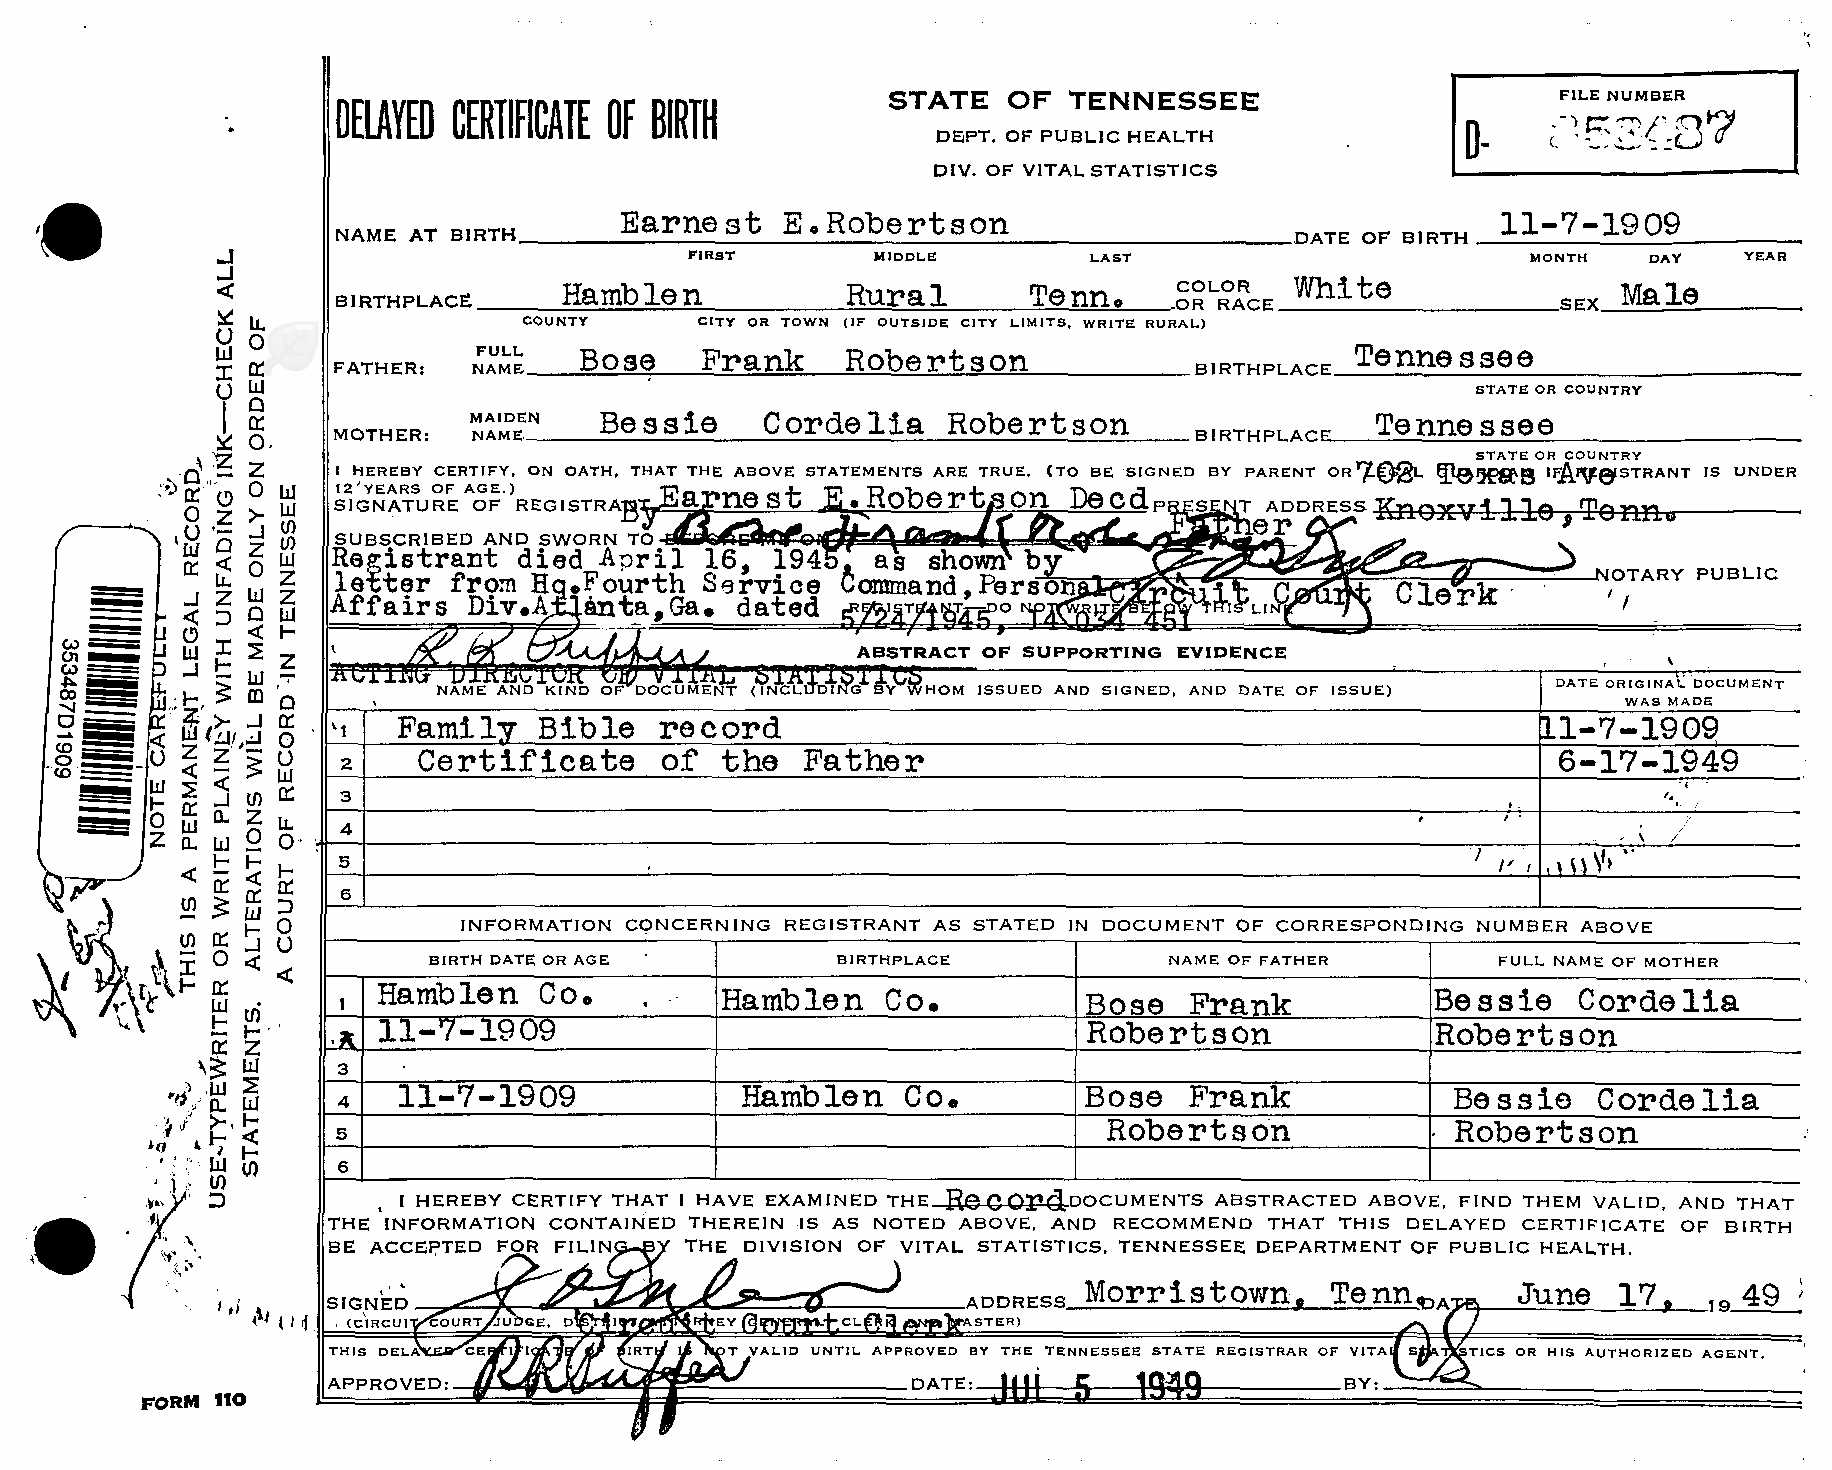 DELAYED CERTIFICATE OF BIRTH
STATE OF TENNESSEE
DEPT. OF PUBLIC HEALTH
DIV. OF VITAL STATISTICS
FILE NUMBER
D- 353487
NAME AT BIRTH Earnest E.Robertson DATE OF BIRTH 11-7-1909
FIRST MIDDLE LAST MONTH DAY YEAR
BIRTHPLACE Hamblen Rural Tenn. COLOR OR RACE White SEX Male
COUNTY CITY OR TOWN (IF OUTSIDE CITY LIMITS, WRITE RURAL)
FATHER: FULL NAME Bose Frank Robertson BIRTHPLACE Tennessee
STATE OR COUNTRY
MOTHER: MAIDEN NAME Bessie Cordelia Robertson BIRTHPLACE Tennessee
STATE OR COUNTRY
I HEREBY CERTIFY, ON OATH, THAT THE ABOVE STATEMENTS ARE TRUE. (TO BE SIGNED BY PARENT OR LEGAL IF REGISTRANT IS UNDER
702 Texas Ave
12 YEARS OF AGE.)
SIGNATURE OF REGISTRANT Earnest E.Robertson Decd PRESENT ADDRESS Knoxville,Tenn.
By Bose Frank Robertson Father
SUBSCRIBED AND SWORN TO BEFORE ME ON
Registrant died April 16, 1945, as shown by
letter from Hq.Fourth Service Command,Personal
NOTARY PUBLIC
Circuit Court Clerk
Affairs Div.Atlanta,Ga. dated
REGISTRANT—DO NOT WRITE BELOW THIS LINE
5/24/1945, 14 034 451
ABSTRACT OF SUPPORTING EVIDENCE
ACTING DIRECTOR OF VITAL STATISTICS
NAME AND KIND OF DOCUMENT (INCLUDING BY WHOM ISSUED AND SIGNED, AND DATE OF ISSUE)
DATE ORIGINAL DOCUMENT
WAS MADE
1 Family Bible record 11-7-1909
2 Certificate of the Father 6-17-1949
3
4
5
6
INFORMATION CONCERNING REGISTRANT AS STATED IN DOCUMENT OF CORRESPONDING NUMBER ABOVE
BIRTH DATE OR AGE BIRTHPLACE NAME OF FATHER FULL NAME OF MOTHER
1 Hamblen Co. Hamblen Co. Bose Frank Bessie Cordelia
11-7-1909 Robertson Robertson
3
4 11-7-1909 Hamblen Co. Bose Frank Bessie Cordelia
5 Robertson Robertson
6
I HEREBY CERTIFY THAT I HAVE EXAMINED THE Record DOCUMENTS ABSTRACTED ABOVE, FIND THEM VALID, AND THAT
THE INFORMATION CONTAINED THEREIN IS AS NOTED ABOVE, AND RECOMMEND THAT THIS DELAYED CERTIFICATE OF BIRTH
BE ACCEPTED FOR FILING BY THE DIVISION OF VITAL STATISTICS, TENNESSEE DEPARTMENT OF PUBLIC HEALTH.
SIGNED ADDRESS Morristown, Tenn. DATE June 17, 1949
Circuit Court Clerk
THIS DELAYED CERTIFICATE OF BIRTH IS NOT VALID UNTIL APPROVED BY THE TENNESSEE STATE REGISTRAR OF VITAL STATISTICS OR HIS AUTHORIZED AGENT.
APPROVED: DATE: JUL 5 1949 BY:
FORM 110
353487D1909
NOTE CAREFULLY
THIS IS A PERMANENT LEGAL RECORD.
USE TYPEWRITER OR WRITE PLAINLY WITH UNFADING INK—CHECK ALL
STATEMENTS. ALTERATIONS WILL BE MADE ONLY ON ORDER OF
A COURT OF RECORD IN TENNESSEE